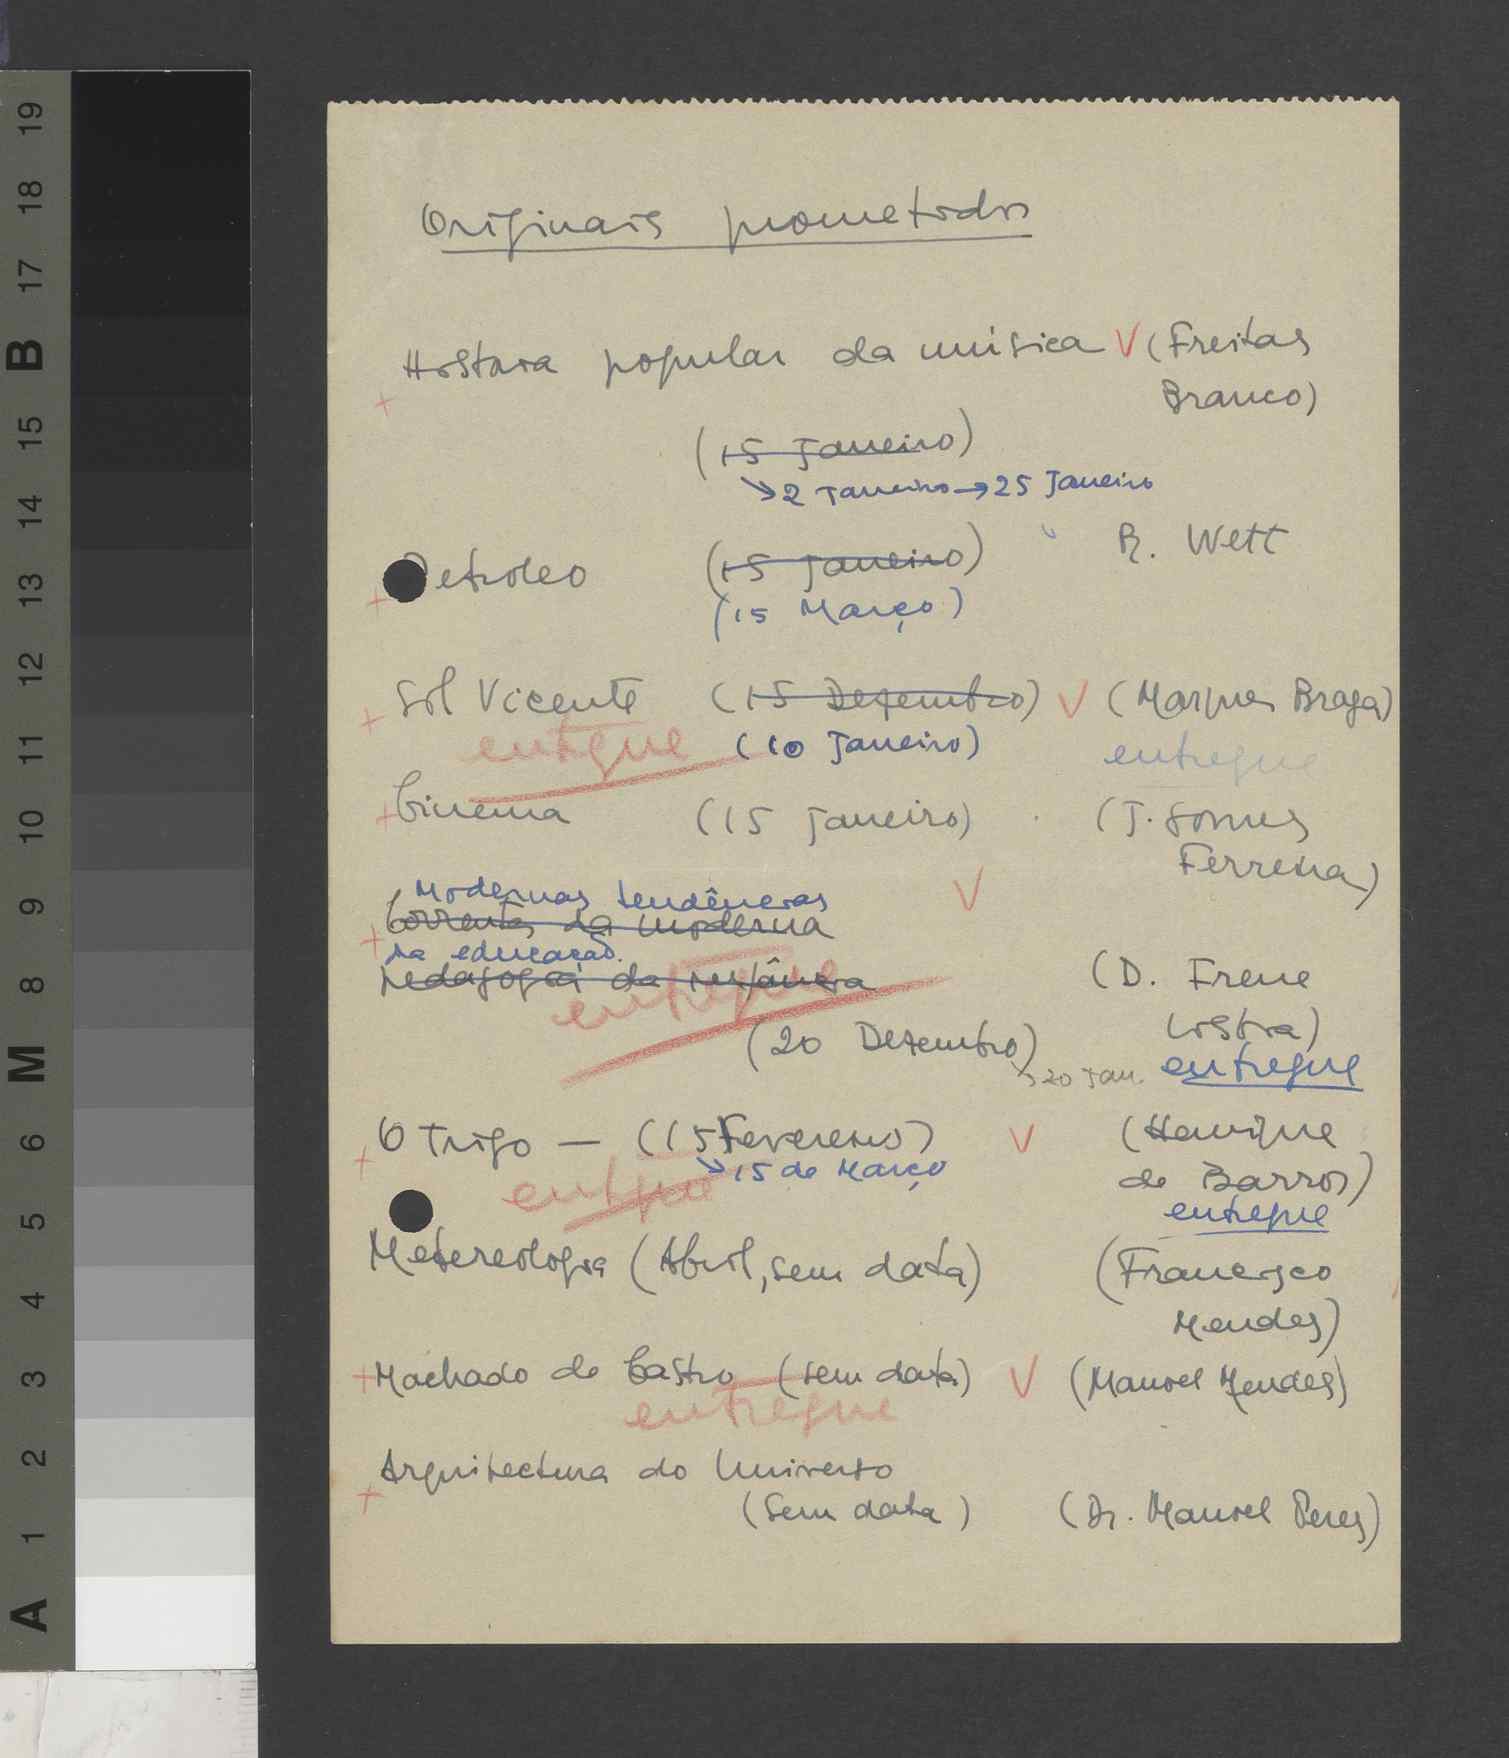 Originais prometidos
História popular da música V (Freitas
Branco)
(15 Janeiro)
2 Janeiro → 25 Janeiro
Petroleo (15 Janeiro) R. Wett
(15 Março)
Gil Vicente (15 Dezembro) V (Marques Braga)
entregue (10 Janeiro) entregue
Cinema (15 Janeiro) (J. Gomes
Ferreira)
Modernas tendências V
Correntes da moderna
na educação.
pedagogia da infância (D. Irene
entregue
(20 Dezembro) Lisboa)
→ 20 Jan. entregue
O Trigo — (15 Fevereiro) V (Henrique
→ 15 de Março de Barros)
entregue entregue
Metereologia (Abril, sem data) (Francisco
Mendes)
Machado de Castro (sem data) V (Manuel Mendes)
entregue
Arquitectura do Universo
(sem data) (Dr. Manuel Peres)
A 1 2 3 4 5 6 M 8 9 10 11 12 13 14 15 B 17 18 19